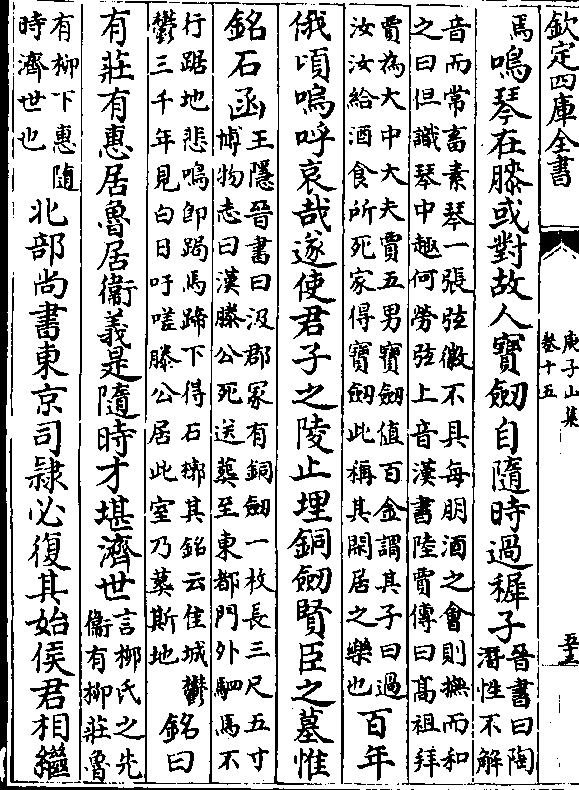 欽定四庫全書
庾子山集
卷十五
焉
鳴琴在膝或對故人寶劒自隨時過穉子
晉書曰陶
潛性不解
音而常畜素琴一張弦徽不具每朋酒之會則撫而和
之曰但識琴中趣何勞弦上音漢書陸賈傳曰高祖拜
賈為大中大夫賈五男寶劒值百金謂其子曰過
汝汝給酒食所死家得寶劒此稱其閑居之樂也
百年
俄頃嗚呼哀哉遂使君子之陵止埋銅劒賢臣之墓惟
銘石函
王隱晉書曰汲郡冢有銅劒一枚長三尺五寸
博物志曰漢滕公死送葬至東都門外駟馬不
行踞地悲鳴即跼馬蹄下得石槨其銘云佳城鬱
鬱三千年見白日吁嗟滕公居此室乃葬斯地
銘曰
有莊有惠居魯居衞義是隨時才堪濟世
言栁氏之先
衞有栁莊魯
有栁下惠隨
時濟世也
北部尚書東京司隷必復其始侯君相繼